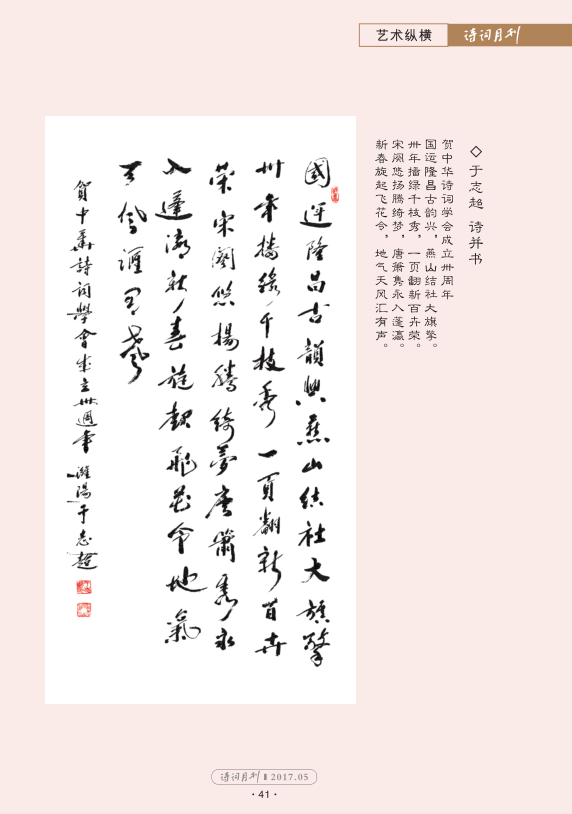 艺术纵横
诗词月刊
◇于志超 诗并书
贺中华诗词学会成立卅周年
国运隆昌古韵兴，燕山结社大旗擎。
卅年播绿千枝秀，一页翻新百卉荣。
宋阕悠扬腾绮梦，唐箫隽永入蓬瀛。
新春旋起飞花令，地气天风汇有声。
國運隆昌古韻興燕山結社大旗擎
卅年播綠千枝秀一頁翻新百卉
榮宋闋悠揚騰綺夢唐簫雋永
入蓬瀛新春旋起飛花令地氣
天風匯有聲
賀中華詩詞學會成立卅週年 濰陽于志超
诗词月刊 2017.05
·41·